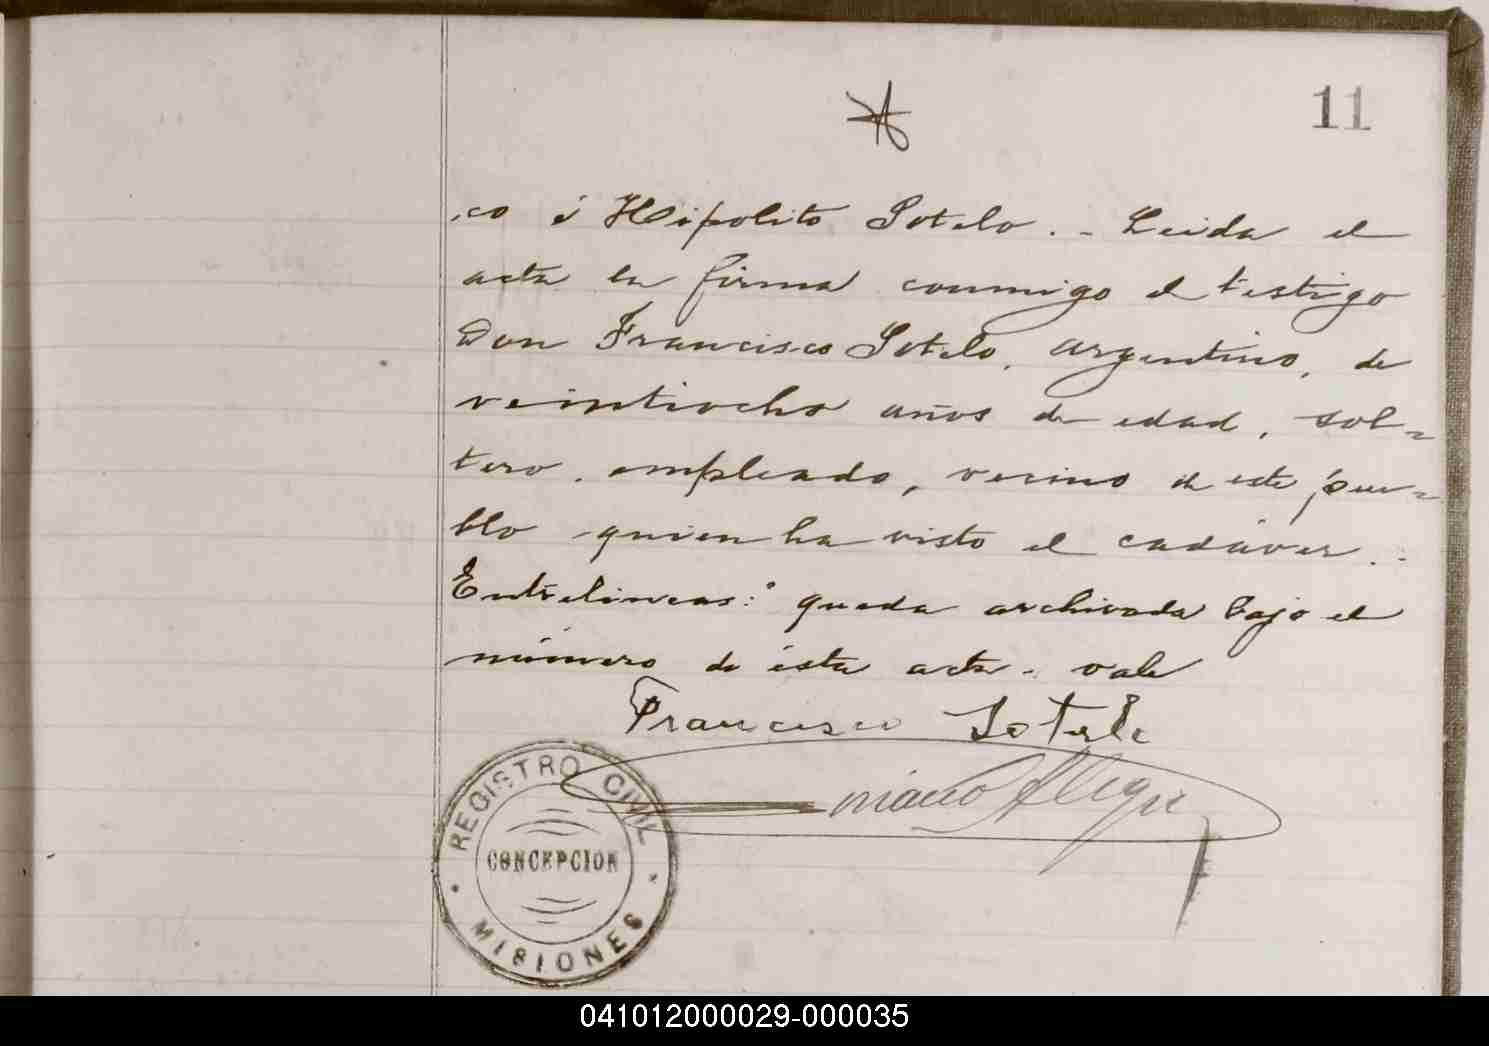 11
co é Hipolito Sotelo. - Leida el
acta la firma conmigo el testigo
Don Francisco Sotelo, argentino, de
veintiocho años de edad, sol-
tero, empleado, vecino de este pue-
blo quien ha visto el cadáver. -
Entrelineas: "queda archivada bajo el
número de ésta acta - vale
Francisco Sotelo
REGISTRO CIVIL
CONCEPCION
MISIONES
041012000029-000035